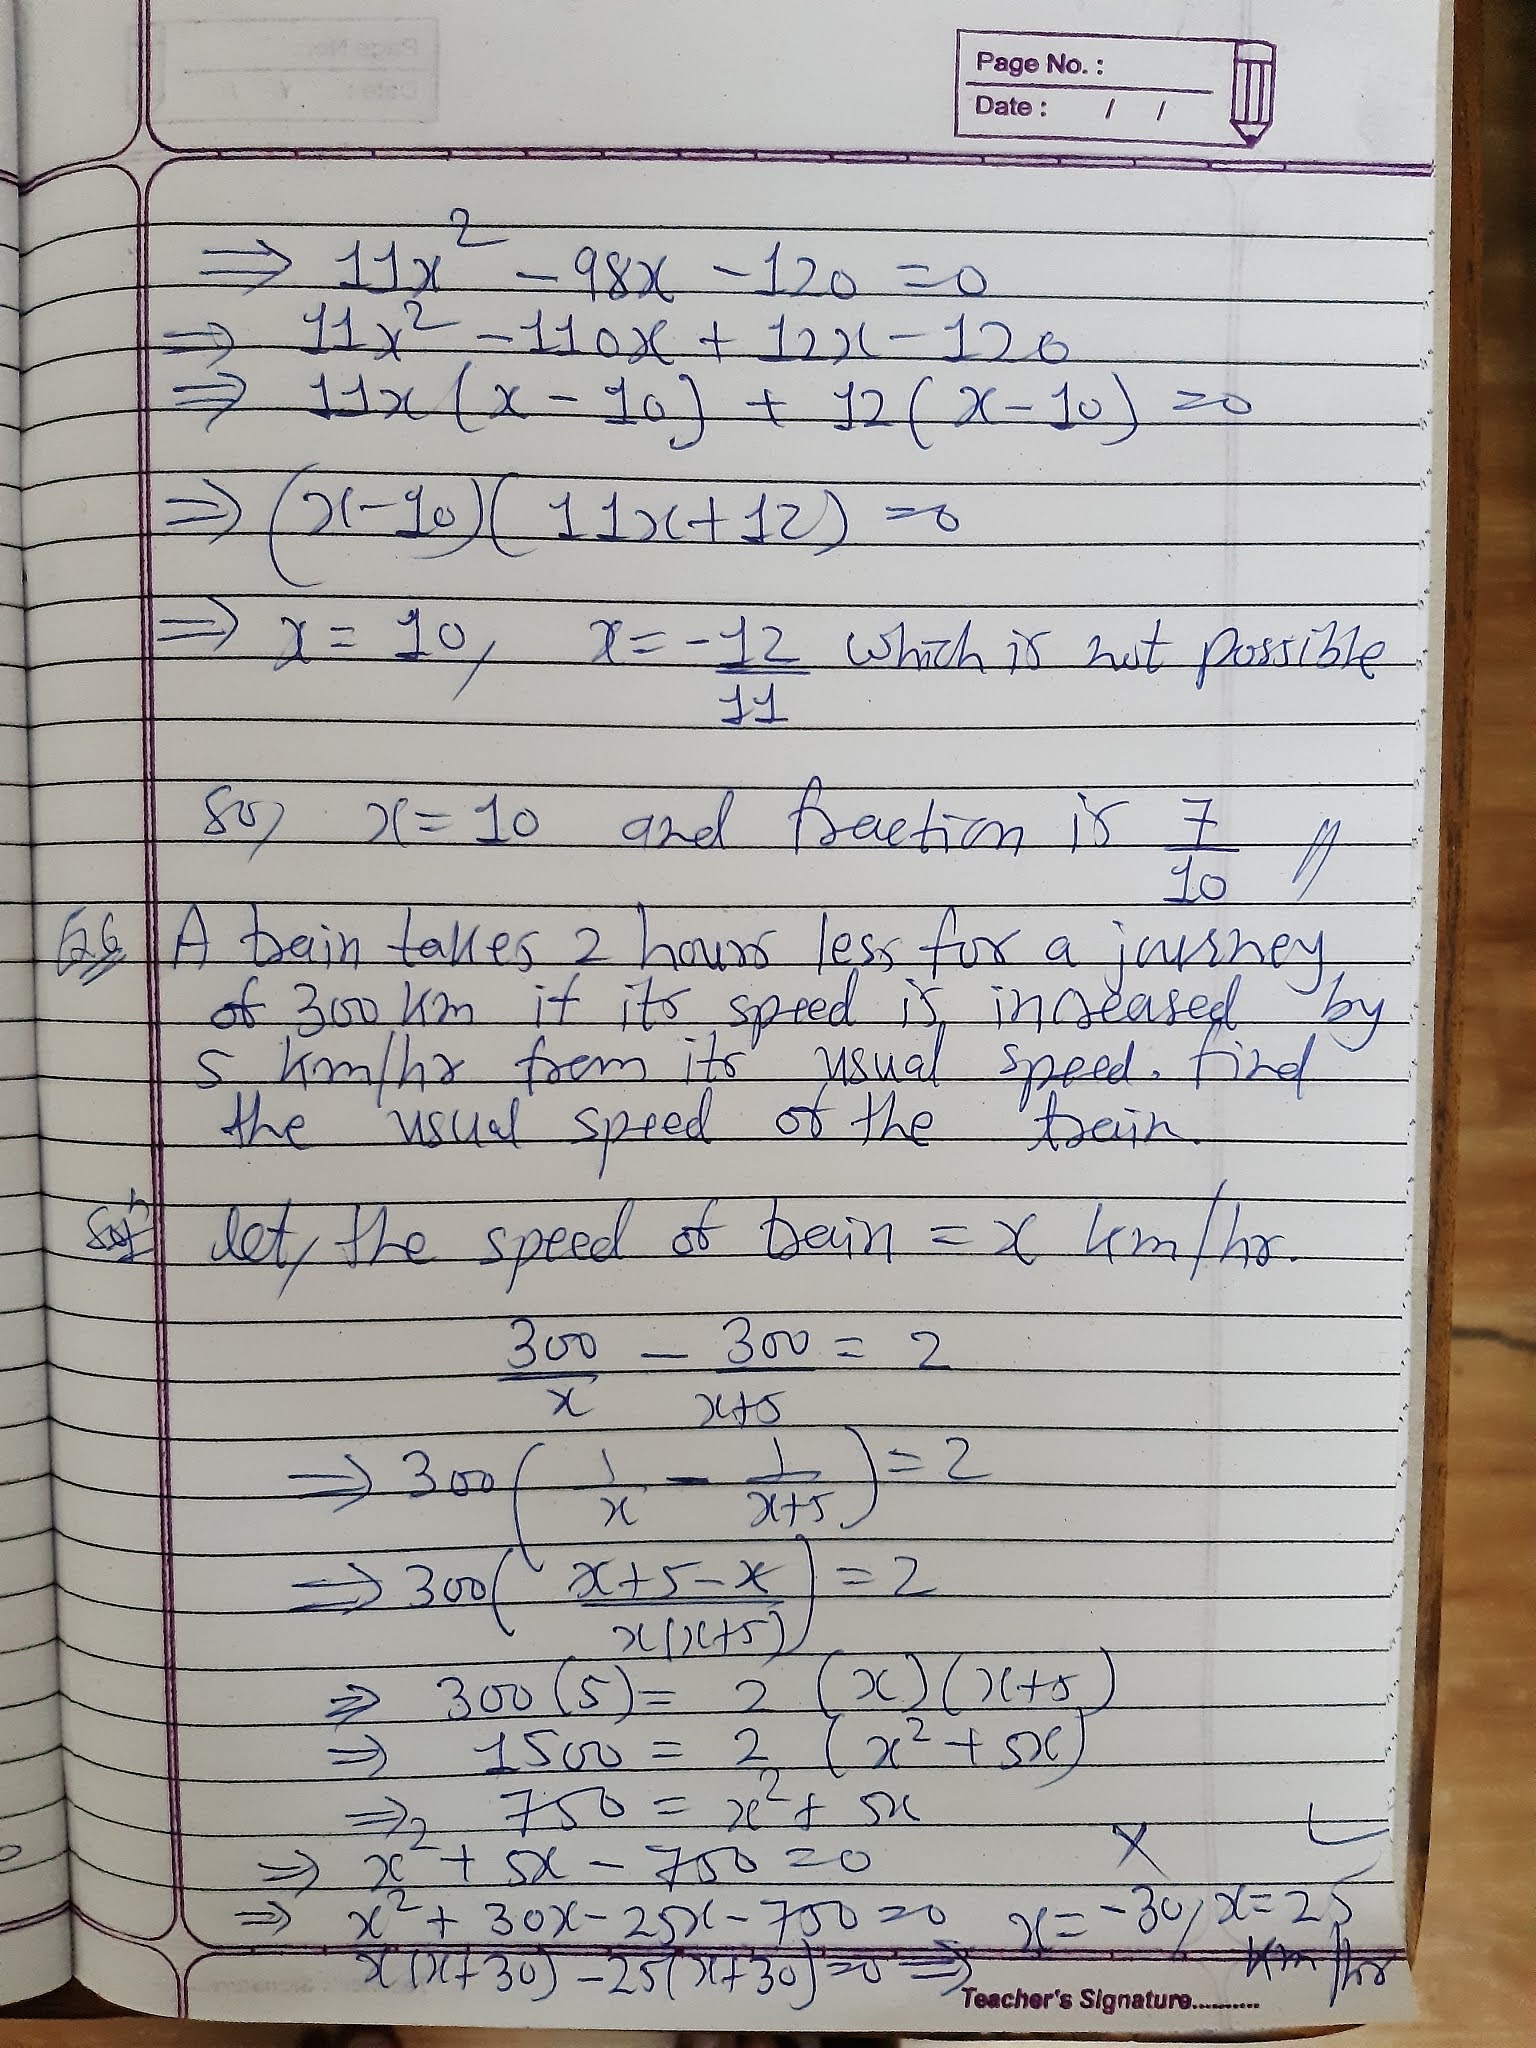 Page No. :
Date : / /
⇒ 11x² - 98x - 120 = 0
⇒ 11x² - 110x + 12x - 120
⇒ 11x (x - 10) + 12 (x - 10) = 0
⇒ (x-10) (11x+12) = 0
⇒ x = 10, x = -12/11 which is not possible
So, x = 10 and fraction is 7/10 //
Q6 A train takes 2 hours less for a journey
of 300 km if its speed is increased by
5 km/hr from its usual speed. find
the usual speed of the train.
Solⁿ let, the speed of train = x km/hr.
300/x - 300/x+5 = 2
⇒ 300 (1/x - 1/x+5) = 2
⇒ 300 (x+5-x/x(x+5)) = 2
⇒ 300 (5) = 2 (x) (x+5)
⇒ 1500 = 2 (x² + 5x)
⇒ 750 = x² + 5x
⇒ x² + 5x - 750 = 0 X ✓
⇒ x² + 30x - 25x - 750 = 0 x = -30, x = 25
x(x+30) - 25(x+30) = 0 ⇒ km/hr
Teacher's Signature..........